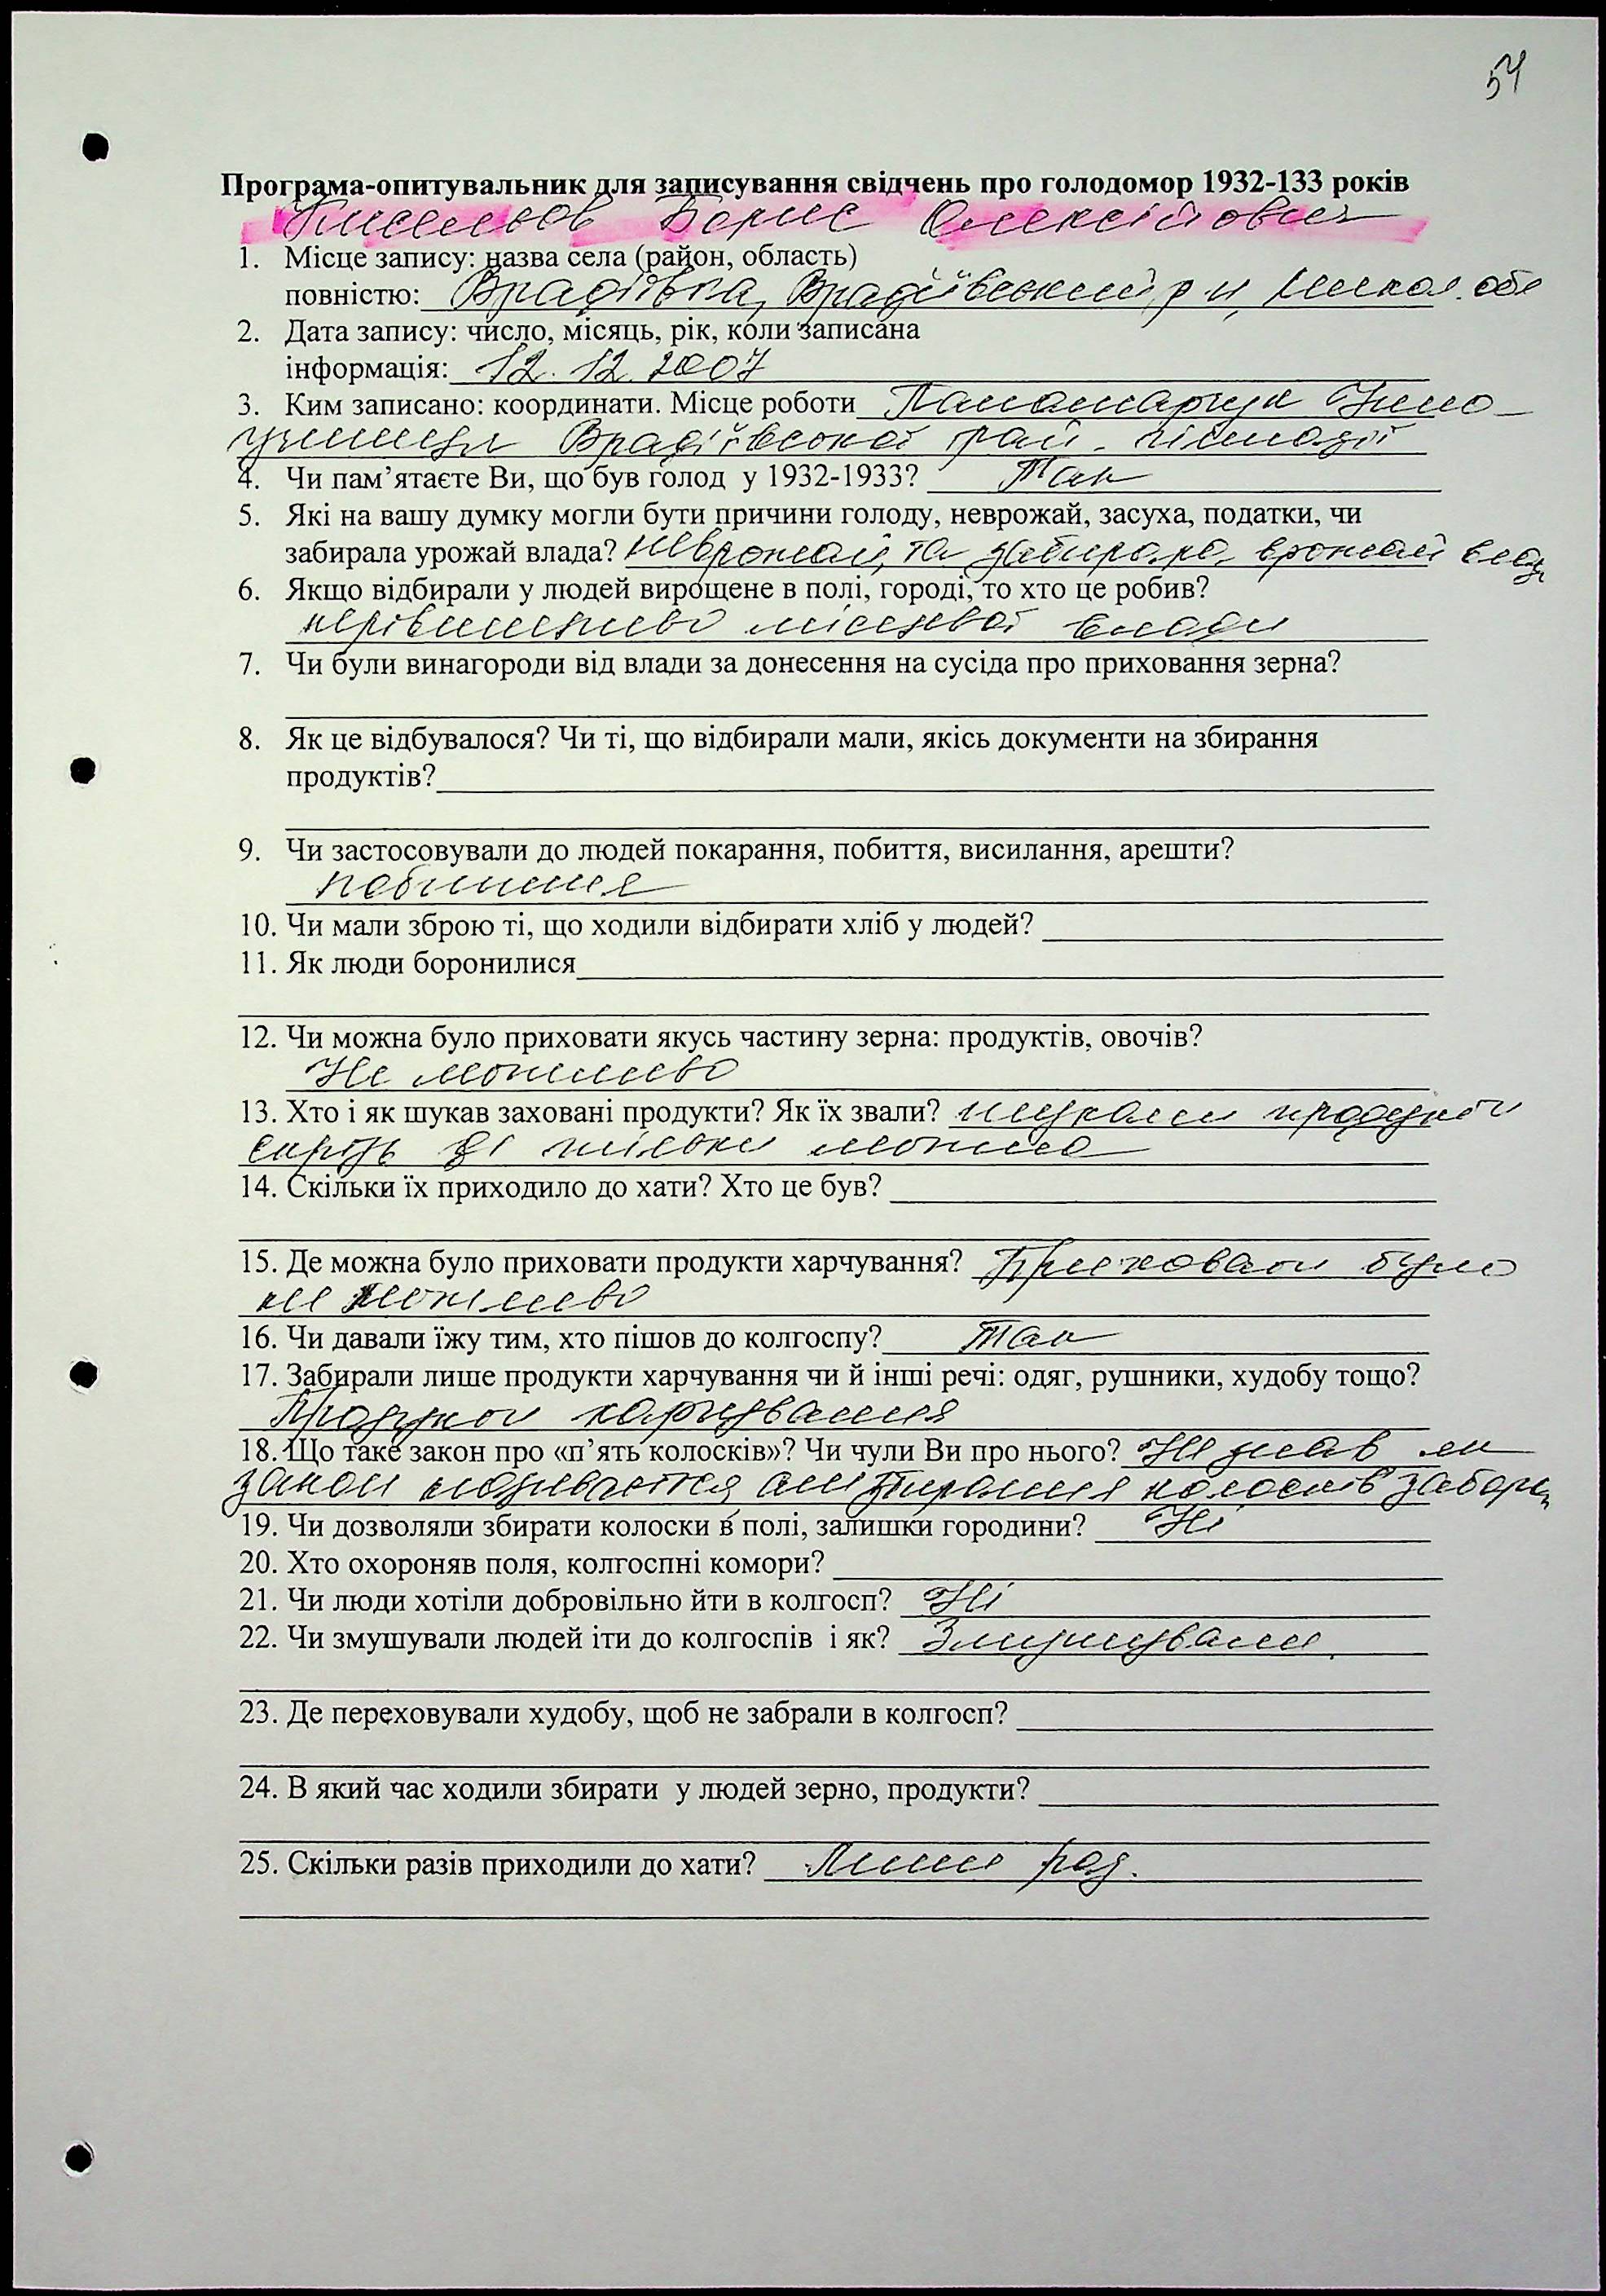 54
Програма-опитувальник для записування свідчень про голодомор 1932-133 років
Кисельов Борис Олексійович
1. Місце запису: назва села (район, область)
повністю: Врадіївка, Врадіївський р-н, Микол. обл
2. Дата запису: число, місяць, рік, коли записана
інформація: 12. 12. 2007
3. Ким записано: координати. Місце роботи
учениця Врадіївської гімназії
4. Чи пам’ятаєте Ви, що був голод у 1932-1933? Так
5. Які на вашу думку могли бути причини голоду, неврожай, засуха, податки, чи
забирала урожай влада? Неврожай, та забирала врожай влада
6. Якщо відбирали у людей вирощене в полі, городі, то хто це робив?
керівництво місцевої влади
7. Чи були винагороди від влади за донесення на сусіда про приховання зерна?
8. Як це відбувалося? Чи ті, що відбирали мали, якісь документи на збирання
продуктів?
9. Чи застосовували до людей покарання, побиття, висилання, арешти?
побиття
10. Чи мали зброю ті, що ходили відбирати хліб у людей?
11. Як люди боронилися
12. Чи можна було приховати якусь частину зерна: продуктів, овочів?
Не можливо
13. Хто і як шукав заховані продукти? Як їх звали? шукали продукти
скрізь де тільки можна
14. Скільки їх приходило до хати? Хто це був?
15. Де можна було приховати продукти харчування? Приховати було
не можливо
16. Чи давали їжу тим, хто пішов до колгоспу? Так
17. Забирали лише продукти харчування чи й інші речі: одяг, рушники, худобу тощо?
Продукти харчування
18. Що таке закон про «п’ять колосків»? Чи чули Ви про нього? Не знав як
закон називається, але збирання колосків забор.
19. Чи дозволяли збирати колоски в полі, залишки городини? Ні
20. Хто охороняв поля, колгоспні комори?
21. Чи люди хотіли добровільно йти в колгосп? Ні
22. Чи змушували людей іти до колгоспів і як? Змушували
23. Де переховували худобу, щоб не забрали в колгосп?
24. В який час ходили збирати у людей зерно, продукти?
25. Скільки разів приходили до хати? Лише раз.